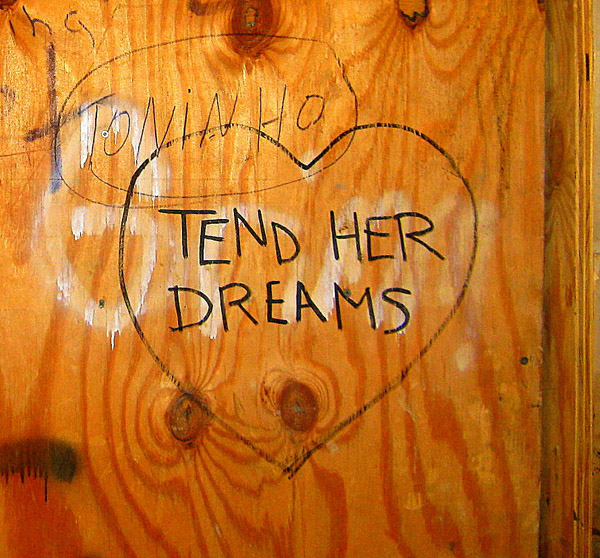 TONINHO
TEND HER
DREAMS